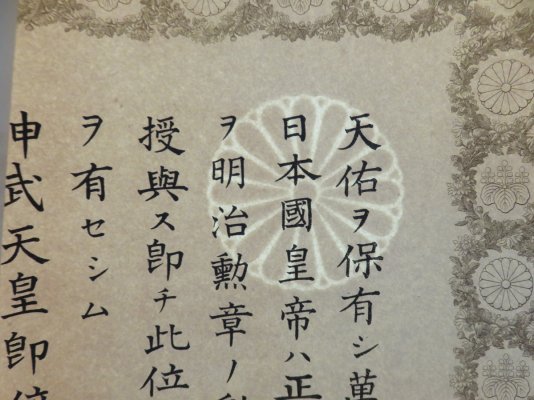 天佑ヲ保有シ萬
日本國皇帝ハ正
ヲ明治勲章ノ
授與ス即チ此位
ヲ有セシム
武天皇即位